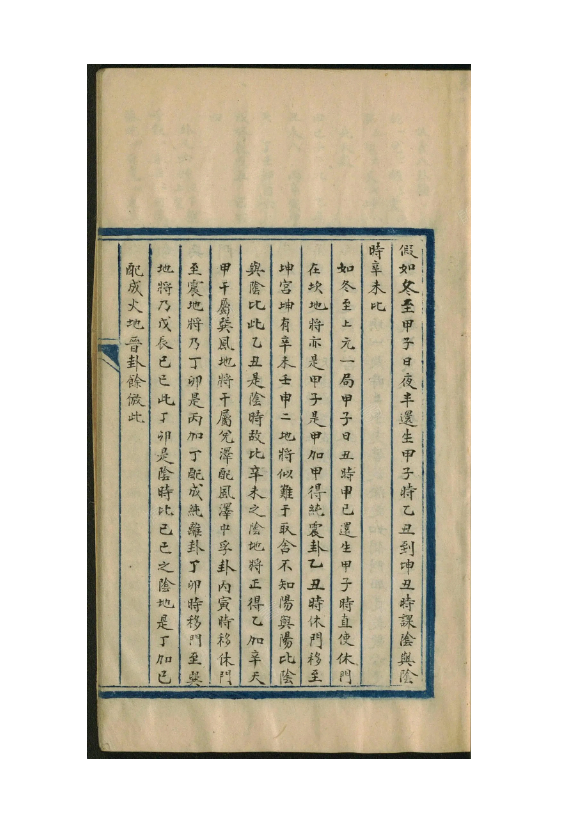 假如冬至甲子日夜半還生甲子時乙丑到坤丑時課陰與陰
時辛未比
如冬至上元一局甲子日丑時甲已還生甲子時直使休門
在坎地將亦是甲子是甲加甲得純震卦乙丑時休門移至
坤宮坤有辛未壬申二地將似難于取舍不知陽與陽比陰
與陰比此乙丑是陰時故比辛未之陰地將正得乙加辛天
甲干屬巽風地將干屬兌澤配風澤中孚卦丙寅時移休門
至震地將乃丁卯是丙加丁配成純離卦丁卯時移門至巽
地將乃戊辰己巳此丁卯是陰時比己巳之陰地是丁加己
配成火地晉卦餘倣此